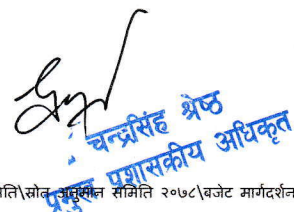 चन्द्रसिंह श्रेष्ठ
प्रमुख प्रशासकीय अधिकृत
ति\स्रोत अनुमान समिति २०७८\बजेट मार्गदर्शन